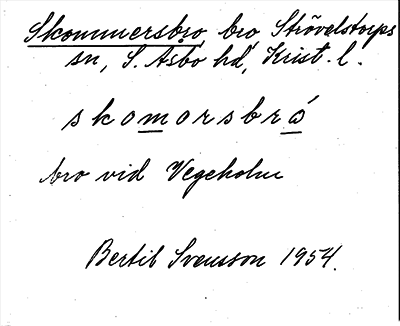 Skommersbro, bro Strövelstorps
sn, S. Åsbo hd, Krist. l.
skomorsbró
bro vid Vegeholm
Bertil Svensson 1954.